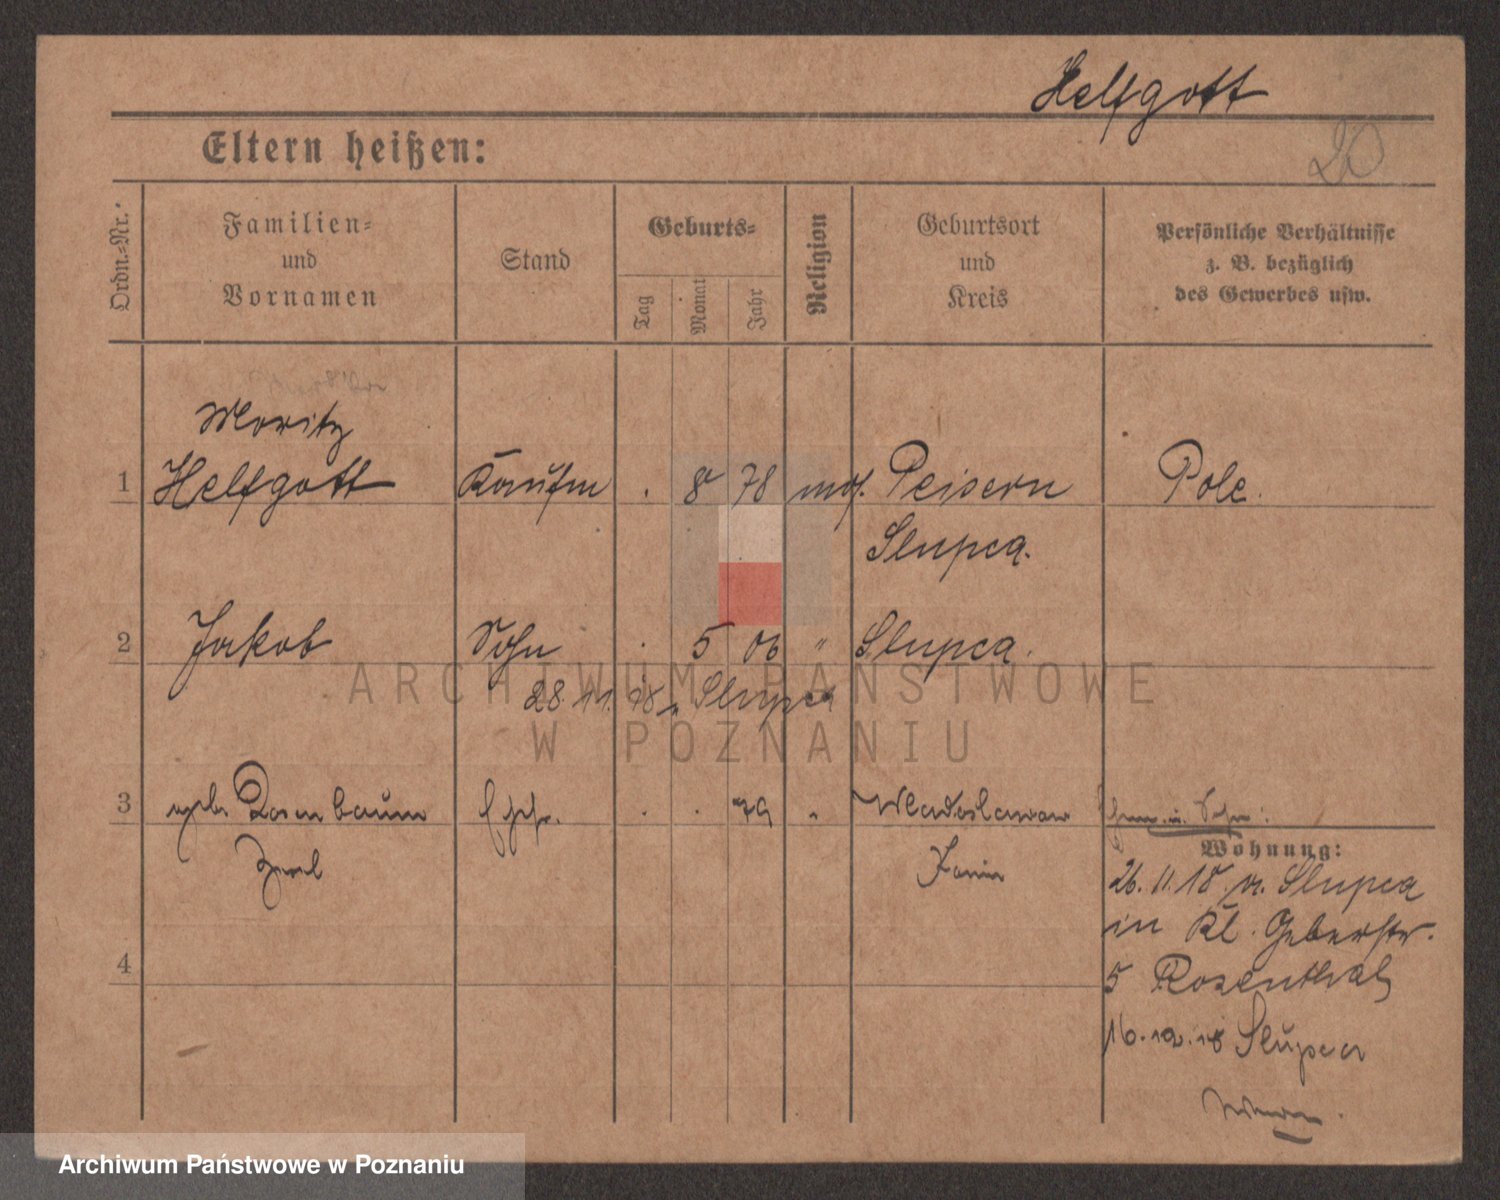 Helfgott
20
Eltern heißen:
Ordn.-Nr.
Familien-
und
Vornamen
Stand
Geburts-
Tag
Monat
Jahr
Religion
Geburtsort
und
Kreis
Persönliche Verhältnisse
z. B. bezüglich
des Gewerbes usw.
Moritz
1 Helfgott Kaufm . 8 78 mos. Peisern Pole.
Slupca.
2 Jakob Sohn . 5 06 " Slupca.
28. 11. 18 n. Slupca
3 geb. Rosenbaum Ehefr. . . 79 " Wladoslawow
Wohnung:
Konin
26. 11. 18 v. Slupca
in Kl. Gerberstr.
4
5 Rosenthal
16. 12. 18 Slupca
ARCHIWUM PAŃSTWOWE
W POZNANIU
Archiwum Państwowe w Poznaniu